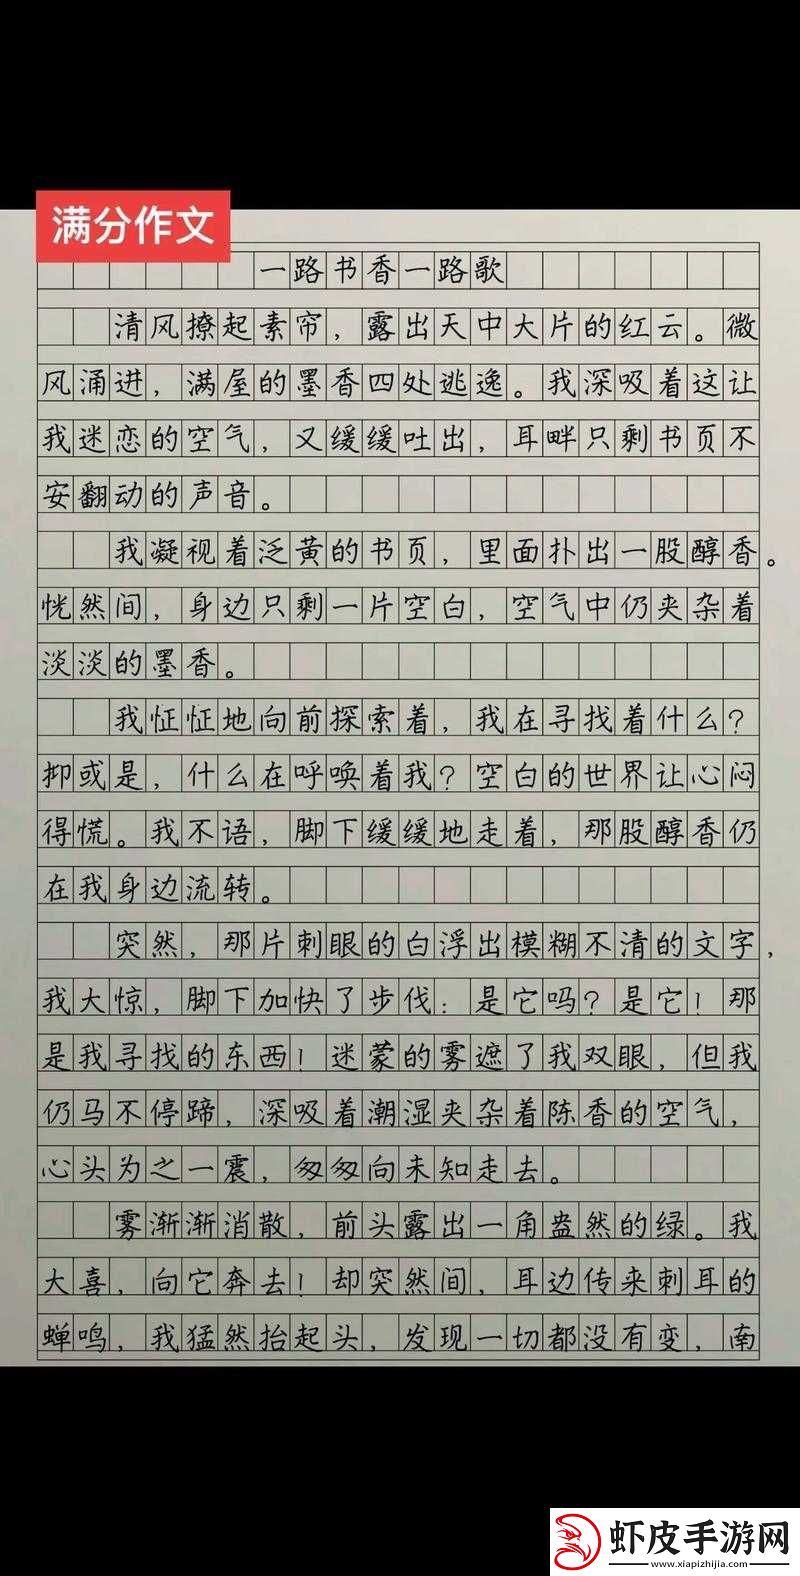 满分作文
一路书香一路歌
清风撩起素帘，露出天中大片的红云。微
风涌进，满屋的墨香四处逃逸。我深吸着这让
我迷恋的空气，又缓缓吐出，耳畔只剩书页不
安翻动的声音。
我凝视着泛黄的书页，里面扑出一股醇香。
恍然间，身边只剩一片空白，空气中仍夹杂着
淡淡的墨香。
我怔怔地向前探索着，我在寻找着什么？
抑或是，什么在呼唤着我？空白的世界让心闷
得慌。我不语，脚下缓缓地走着，那股醇香仍
在我身边流转。
突然，那片刺眼的白浮出模糊不清的文字，
我大惊，脚下加快了步伐：是它吗？是它！那
是我寻找的东西！迷蒙的雾遮了我双眼，但我
仍马不停蹄，深吸着潮湿夹杂着陈香的空气，
心头为之一震，匆匆向未知走去。
雾渐渐消散，前头露出一角盎然的绿。我
大喜，向它奔去！却突然间，耳边传来刺耳的
蝉鸣，我猛然抬起头，发现一切都没有变，南
虾皮手游网
www.xiapizhijia.com